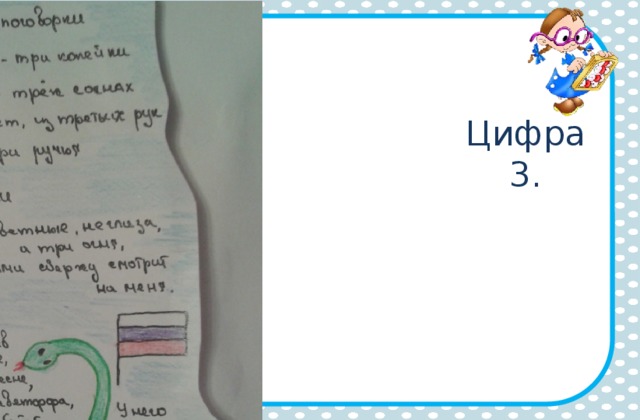 поговорки
- три копейки
трёх соснах
из третьих рук
ри ручья
и
ветные, не глаза,
а три огня,
ми сверху смотрит
на меня.
в
е,
есне,
ветофора,
У него
Цифра
3.